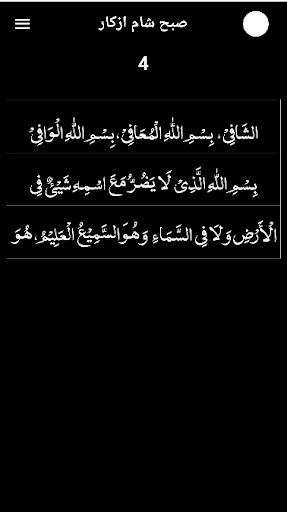 صبح شام ازکار
4
الشَّافِیْ، بِسْمِ اللّٰهِ الْمُعَافِیْ، بِسْمِ اللّٰهِ الْوَافِیْ
بِسْمِ اللّٰهِ الَّذِیْ لَا یَضُرُّ مَعَ اسْمِهٖ شَیْئٌ فِی
الْاَرْضِ وَلَا فِی السَّمَاءِ وَهُوَ السَّمِیْعُ الْعَلِیْمُ، هُوَ